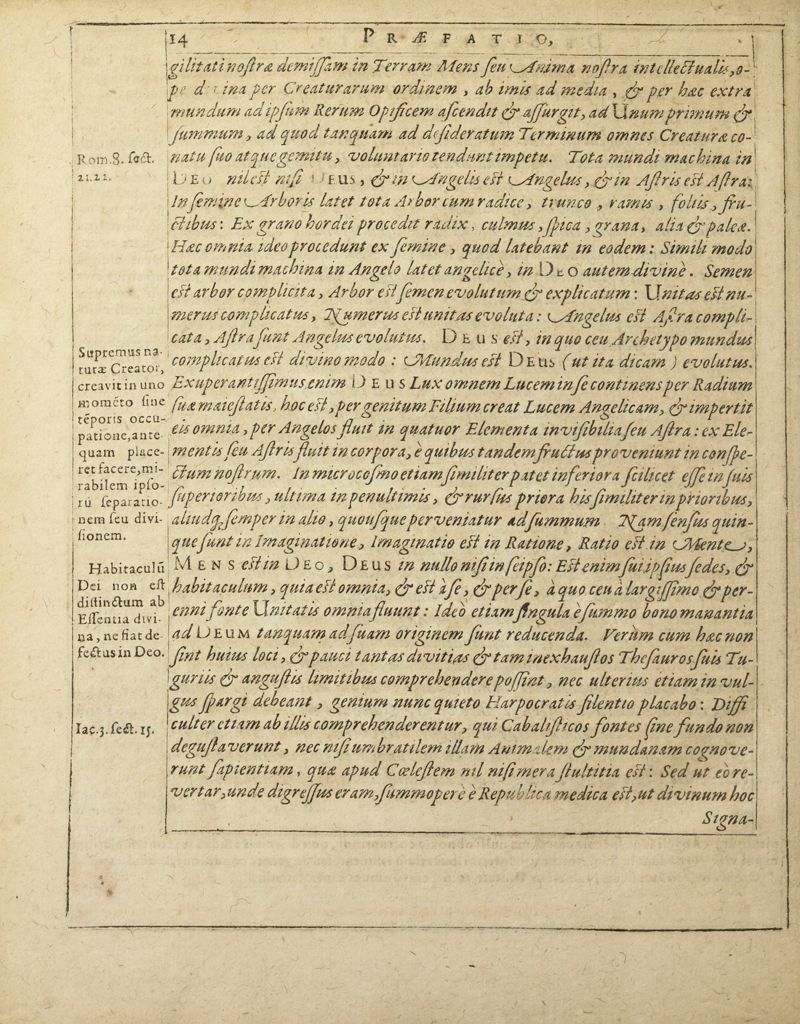 14 PRÆFATIO,
gilitati noſtræ demiſſam in Terram Mens ſeu Anima noſtra intellectualis, o-
pe divina per Creaturarum ordinem, ab imis ad media, & per hæc extra
mundum ad ipſum Rerum Opificem aſcendit & aſſurgit, ad Unum primum &
ſummum, ad quod tanquam ad deſideratum Terminum omnes Creaturæ co-
Rom. 8. ſect.
21. 22.
natu ſuo atque gemitu, voluntario tendunt impetu. Tota mundi machina in
DEO nil eſt niſi DEUS, & in Angelis eſt Angelus, & in Aſtris eſt Aſtra:
In ſemine Arboris latet tota Arbor cum radice, trunco, ramis, foliis, fru-
ctibus: Ex grano hordei procedit radix, culmus, ſpica, grana, alia & paleæ.
Hæc omnia ideo procedunt ex ſemine, quod latebant in eodem: Simili modo
tota mundi machina in Angelo latet angelicè, in DEO autem divinè. Semen
eſt arbor complicita, Arbor eſt ſemen evolutum & explicatum: Unitas eſt nu-
merus complicatus, Numerus eſt unitas evoluta: Angelus eſt Aſtra compli-
cata, Aſtra ſunt Angelus evolutus. DEUS eſt, in quo ceu Archetypo mundus
Supremus na-
turæ Creator,
creavit in uno
momēto ſine
tēporis occu-
patione, ante
quam place-
ret facere, mi-
rabilem ipſo-
rū ſeparatio-
nem ſeu divi-
ſionem.
complicatus eſt divino modo: Mundus eſt DEUS (ut ita dicam) evolutus.
Exuperantiſſimus enim DEUS Lux omnem Lucem in ſe continens per Radium
ſuæ maieſtatis, hoc eſt, per genitum Filium creat Lucem Angelicam, & impertit
eis omnia, per Angelos fluit in quatuor Elementa inviſibilia ſeu Aſtra: ex Ele-
mentis ſeu Aſtris fluit in corpora, è quibus tandem fructus proveniunt in conſpe-
ctum noſtrum. In microcoſmo etiam ſimiliter patet inferiora ſcilicet eſſe in ſuis
ſuperioribus, ultima in penultimis, & rurſus priora his ſimiliter in prioribus,
aliudq́; ſemper in alio, quouſque perveniatur ad ſummum Nam ſenſus quin-
que ſunt in Imaginatione, Imaginatio eſt in Ratione, Ratio eſt in Mente,
Habitaculū
Dei non eſt
diſtinctum ab
Eſſentia divi-
na, ne fiat de-
fectus in Deo.
MENS eſt in DEO, DEUS in nullo niſi in ſeipſo: Eſt enim ſui ipſius ſedes, &
habitaculum, quia eſt omnia, & eſt à ſe, & per ſe, à quo ceu à largiſſimo & per-
enni fonte Unitatis omnia fluunt: Ideò etiam ſingula è ſummo bono manantia
ad DEUM tanquam ad ſuam originem ſunt reducenda. Verùm cum hæc non
ſint huius loci, & pauci tantas divitias & tam inexhauſtos Theſauros ſuis Tu-
guriis & anguſtis limitibus comprehendere poſſint, nec ulterius etiam in vul-
gus ſpargi debeant, genium nunc quieto Harpocratis ſilentio placabo: Diffi
Iac. 3. ſect. 15.
culter etiam ab illis comprehenderentur, qui Cabaliſticos fontes ſine fundo non
deguſtaverunt, nec niſi umbratilem illam Animalem & mundanam cognove-
runt ſapientiam, quæ apud Cœleſtem nil niſi mera ſtultitia eſt: Sed ut eò re-
vertar, unde digreſſus eram, ſummoperè è Republica medica eſt, ut divinum hoc
Signa-